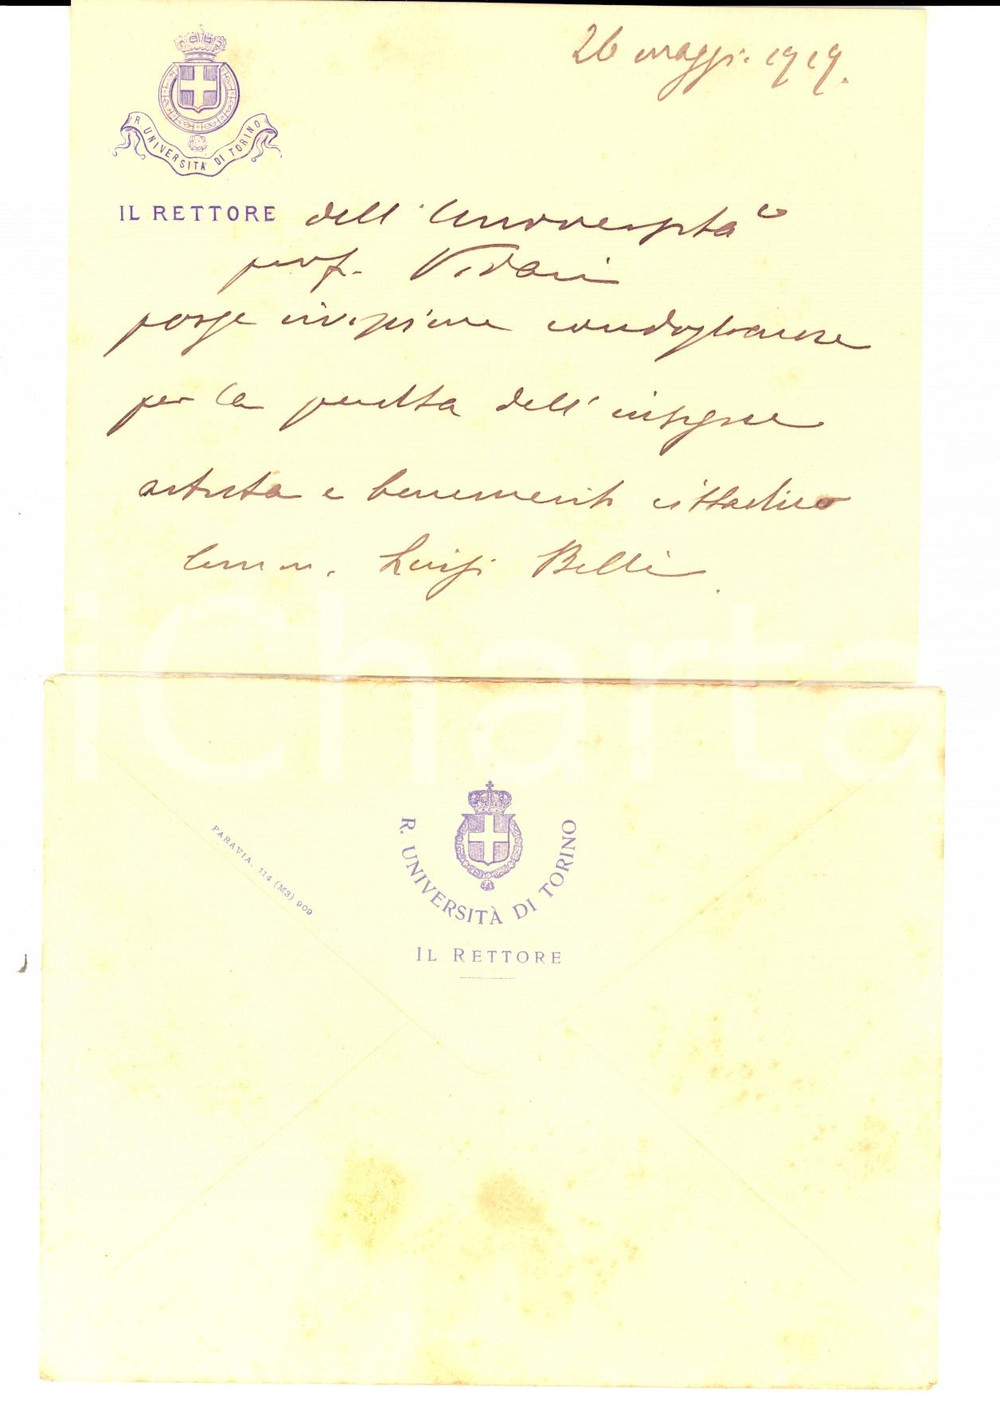 26 maggio 1919.
R. UNIVERSITÀ DI TORINO
IL RETTORE dell'Università
prof. Vidari
porge vivissime condoglianze
per la perdita dell'insigne
artista e benemerito cittadino
Comm. Luigi Belli.
iCharta
PARAVIA. 114 (M3) 909
R. UNIVERSITÀ DI TORINO
IL RETTORE